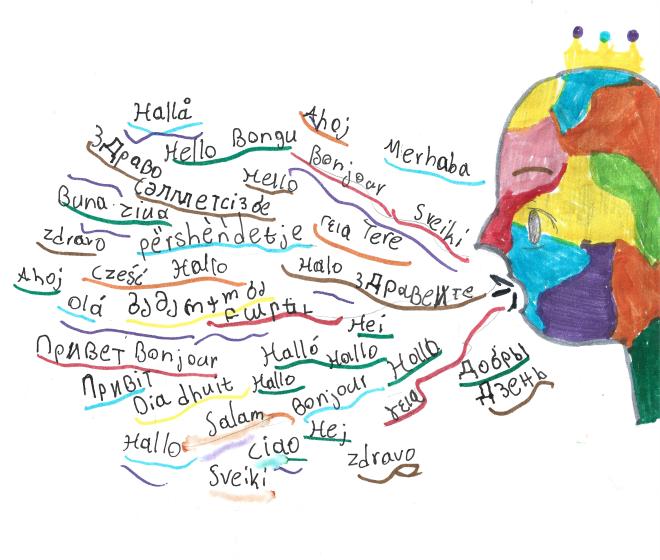 Hallå
Ahoj
Здраво
Hello
Bongu
Merhaba
Bonjour
Сәлметсізбе
Hello
Buna ziua
Sveiki
zdravo
përshëndetje
γεια
Tere
Ahoj
Cześć
Hallo
Halo
Здравейте
Olá
Hei
Привет
Bonjour
Halló
Hallo
Hallo
Добры
Дзень
Привіт
Dia dhuit
Hallo
Bonjour
γεια
Salam
Hej
Hallo
ciao
zdravo
Sveiki